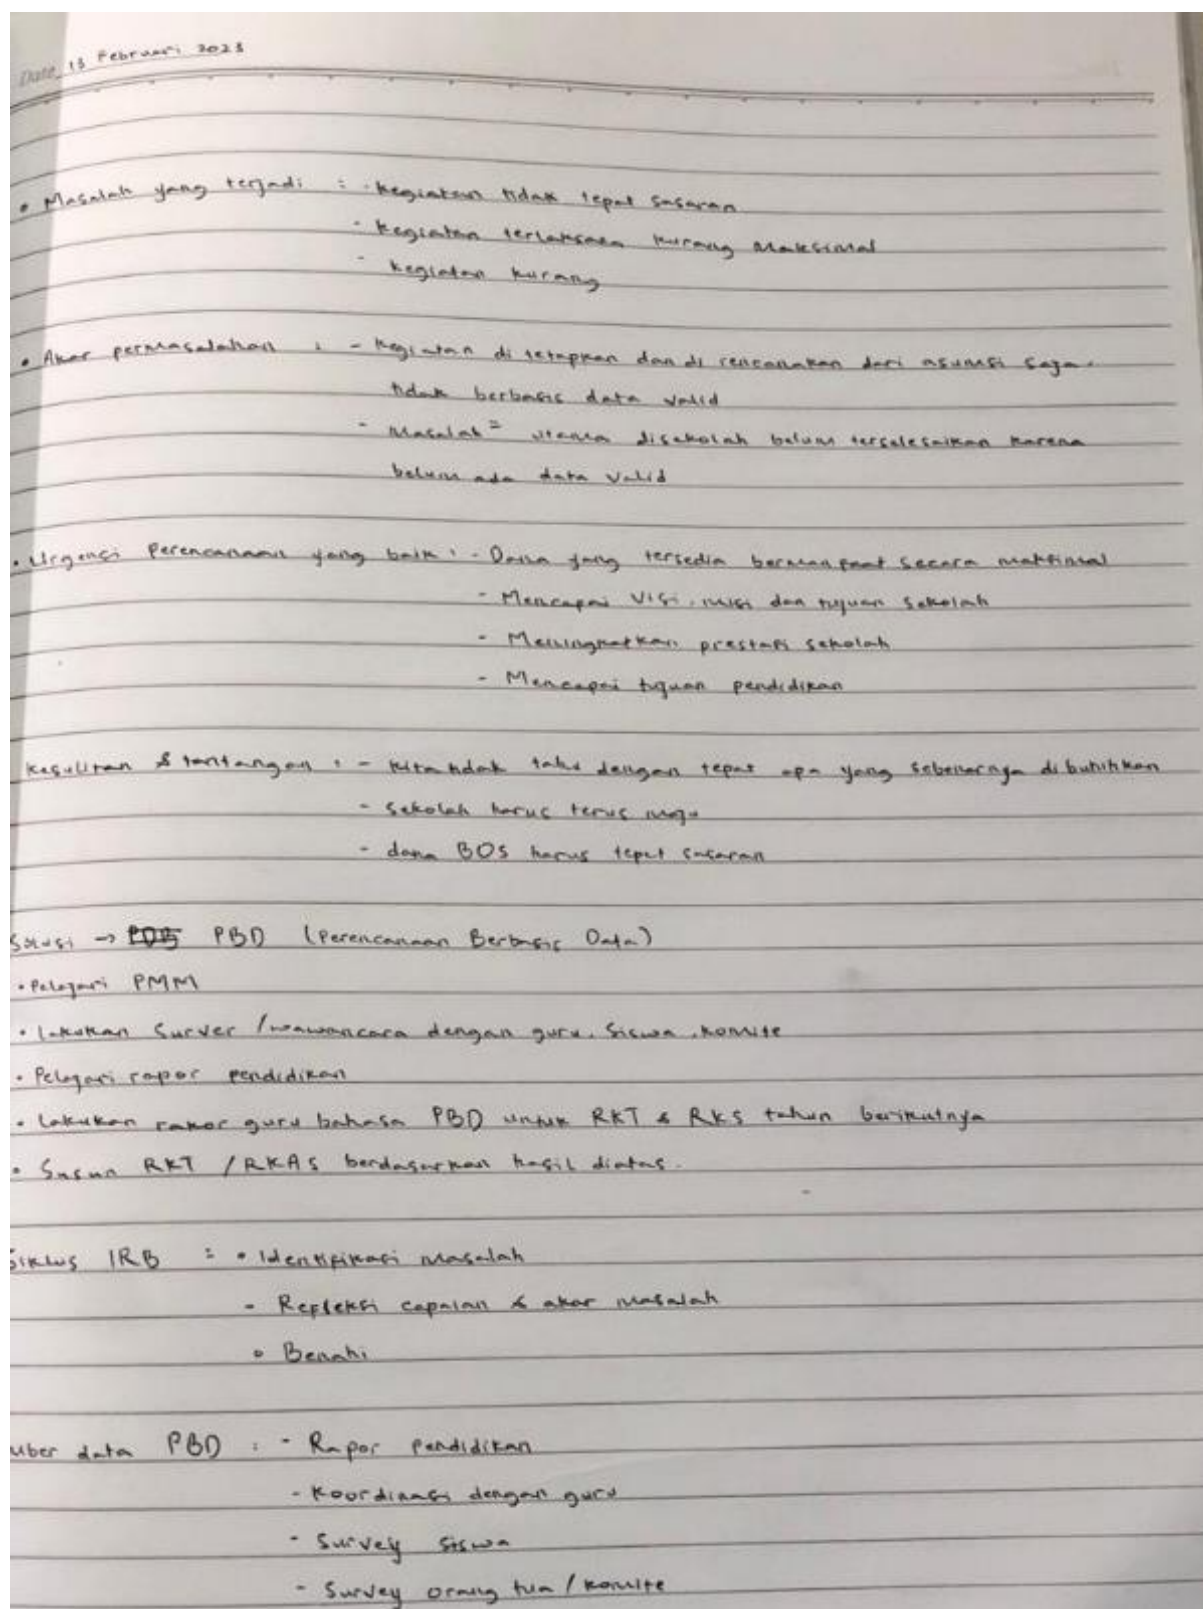 Date 13 Februari 2023
• Masalah yang terjadi : - kegiatan tidak tepat sasaran
- kegiatan terlaksana kurang maksimal
- kegiatan kurang
• Akar permasalahan : - kegiatan di tetapkan dan di rencanakan dari asumsi saja.
tidak berbasis data valid
- Masalah² utama disekolah belum terselesaikan karena
belum ada data valid
• Urgensi Perencanaan yang baik : - Dana yang tersedia bermanfaat secara maksimal
- Mencapai Visi, misi dan tujuan sekolah
- Meningkatkan prestasi sekolah
- Mencapai tujuan pendidikan
kesulitan & tantangan : - kita tidak tahu dengan tepat apa yang sebenarnya dibutuhkan
- Sekolah harus terus maju
- dana BOS harus tepat sasaran
Solusi → PBD (Perencanaan Berbasis Data)
• Pelajari PMM
• Lakukan Survei / wawancara dengan guru, siswa, komite
• Pelajari rapor pendidikan
• Lakukan rakor guru bahasa PBD untuk RKT & RKS tahun berikutnya
• Susun RKT / RKAS berdasarkan hasil diatas.
Siklus IRB : • Identifikasi masalah
- Refleksi capaian & akar masalah
• Benahi
uber data PBD : - Rapor Pendidikan
- Koordinasi dengan guru
- Survey siswa
- Survey orang tua / komite